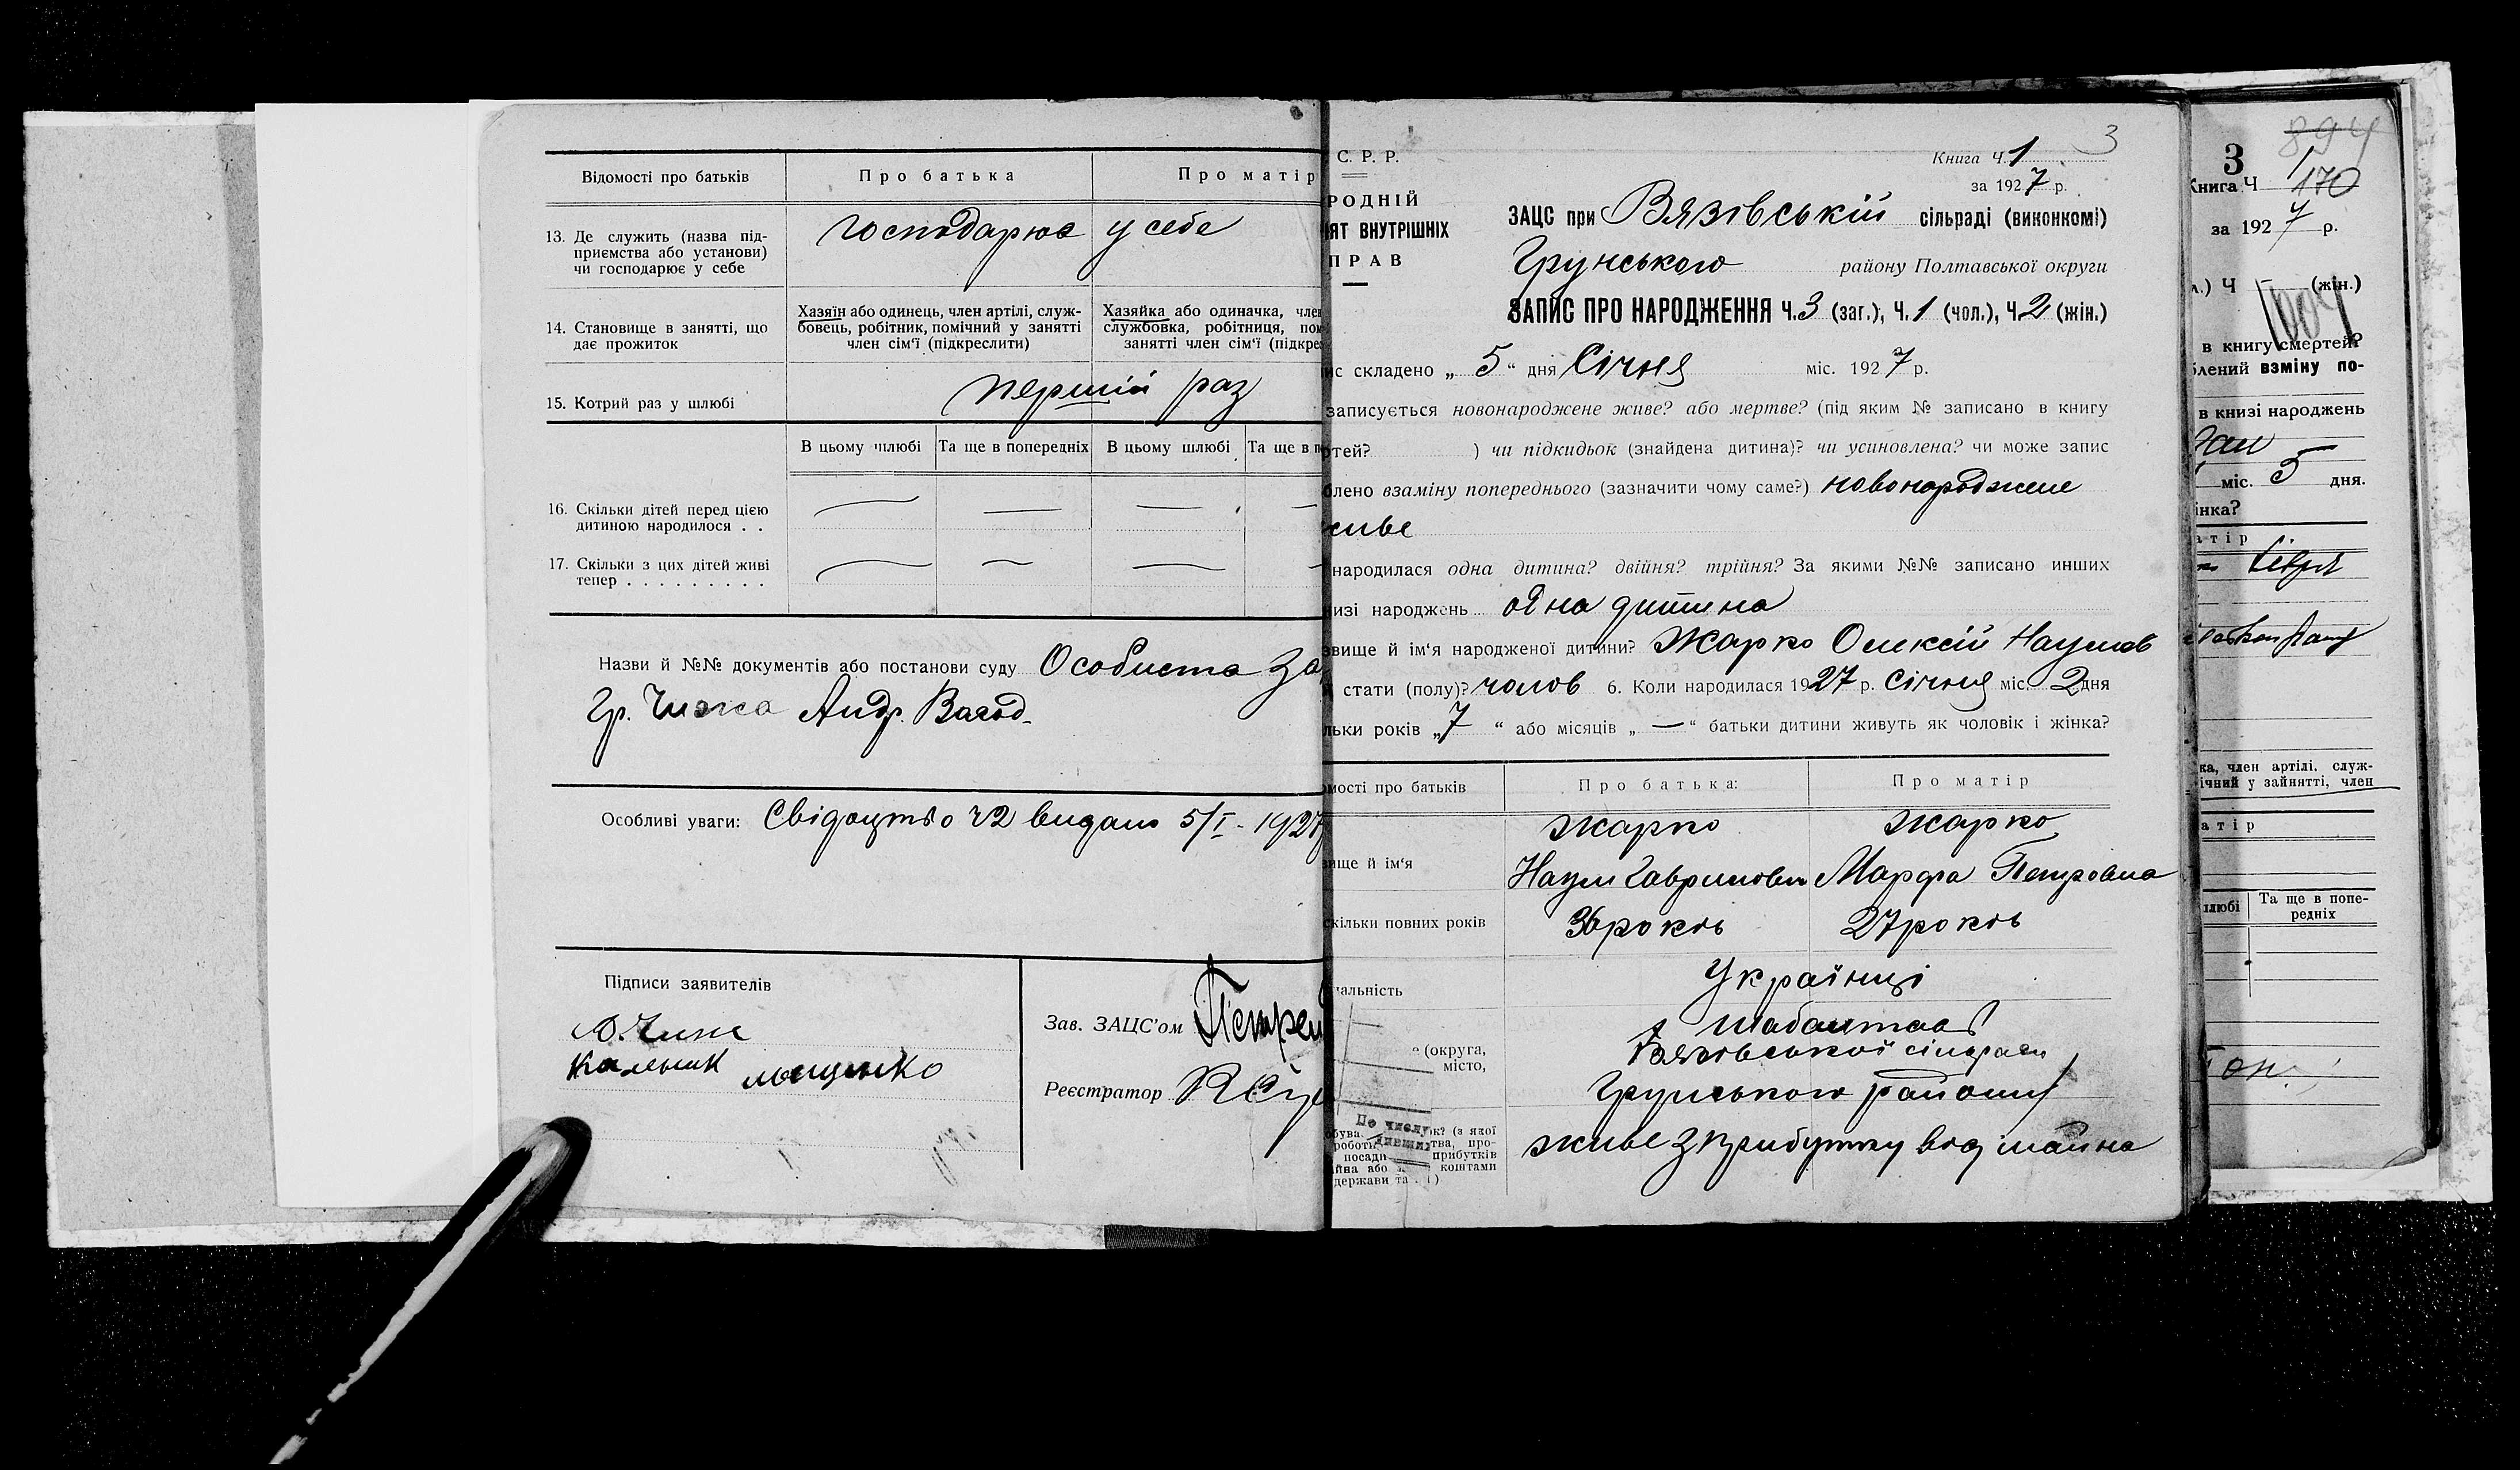 Відомості про батьків
Про батька
Про матір
13. Де служить (назва під-
приємства або установи)
чи господарює у себе
господарює у себе
14. Становище в занятті, що
дає прожиток
Хазяїн або одинець, член артілі, служ-
бовець, робітник, помічний у занятті
член сім'ї (підкреслити)
Хазяйка або одиначка, член
службовка, робітниця, пом
занятті член сім'ї (підкрес
15. Котрий раз у шлюбі
перший раз
В цьому шлюбі
Та ще в попередніх
В цьому шлюбі
Та ще в п
16. Скільки дітей перед цією
дитиною народилося . .
17. Скільки з цих дітей живі
тепер . . . . . . . . .
Назви й №№ документів або постанови суду Особиста за
Гр. Чижа Андр.
Особливі уваги: Свідоцтво ч2 видано 5/I - 1927
Підписи заявителів
А. Чиж
Кальник
Зав. ЗАЦС'ом Петрен
Реєстратор
3
С. Р. Р.
РОДНІЙ
ІЯТ ВНУТРІШНІХ
ПРАВ
Книга Ч. 1
за 1927 р.
ЗАЦС при Вязівській сільраді (виконкомі)
Грунського району Полтавської округи
ЗАПИС ПРО НАРОДЖЕННЯ Ч. 3 (заг.), Ч. 1 (чол.), Ч. 2 (жін.)
ис складено „ 5 “ дня Січня міс. 1927 р.
записується новонароджене живе? або мертве? (під яким № записано в книгу
ртей? ) чи підкидьок (знайдена дитина)? чи усиновлена? чи може запис
блено взаміну попереднього (зазначити чому саме?) новонароджене
живе
народилася одна дитина? двійня? трійня? За якими №№ записано инших
низі народжень одна дитина
звище й ім'я народженої дитини? Жарко Олексій Наумов
стати (полу)? чолов 6. Коли народилася 1927 р. Січня міс. 2 дня
льки років „ 7 “ або місяців „ — “ батьки дитини живуть як чоловік і жінка?
омості про батьків
Про батька:
Про матір
вище й ім'я
Жарко
Наум Гаврилович
Жарко
Марфа Петровна
скільки повних років
36 років
27 років
нальність
Українці
(округа,
місто,
Вязівської сільради
Грунського району
к? (з якої
тва, про-
посади прибутків
йна або коштами
держави та
живе з прибутку від майна
894
3
Книга Ч 1
170
за 1927 р.
л.) Ч (жін.)
в книгу смертей?
блений взміну по-
в книзі народжень
міс. 5 дня.
інка?
атір
ка, член артілі, служ-
ічний у зайнятті, член
атір
шлюбі
Та ще в попе-
редніх